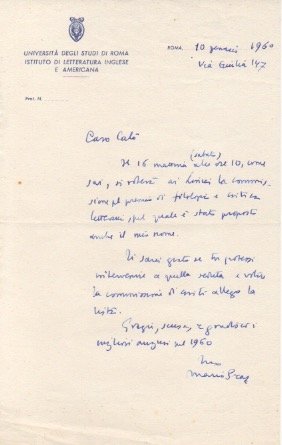 UNIVERSITÀ DEGLI STUDI DI ROMA
ISTITUTO DI LETTERATURA INGLESE
E AMERICANA
ROMA, 10 gennaio 1960
Via Giulia 147
Prot. N.
Caro Calò
(sabato)
Il 16 mattina alle ore 10, come
sai, si voterà ai Lincei la commis-
sione pel premio di filologia e critica
letteraria, pel quale è stato proposto
anche il mio nome.
Ti sarei grato se tu potessi
intervenire a quella seduta e votare
la commissione di cui ti allego la
lista.
Grazie, scusa, e gradisci i
migliori auguri pel 1960
tuo
Mario Praz